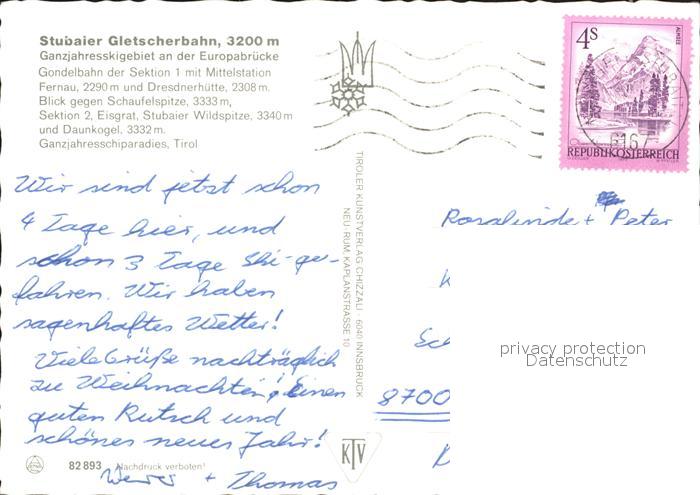 Stubaier Gletscherbahn, 3200 m
Ganzjahresskigebiet an der Europabrücke
Gondelbahn der Sektion 1 mit Mittelstation
Fernau, 2290 m und Dresdnerhütte, 2308 m.
Blick gegen Schaufelspitze, 3333 m,
Sektion 2, Eisgrat, Stubaier Wildspitze, 3340 m
und Daunkogel. 3332 m.
Ganzjahresschiparadies, Tirol
Wir sind jetzt schon
4 Tage hier, und
schon 3 Tage Ski-ge-
fahren. Wir haben
sagenhaftes Wetter!
Viele Grüße nachträglich
zu Weihnachten! Einen
guten Rutsch und
schönes neues Jahr!
+ Thomas
82 893 Nachdruck verboten!
TIROLER KUNSTVERLAG CHIZZALI · 6040 INNSBRUCK
NEU-RUM, KAPLANSTRASSE 10
KTV
4S
ALMSEE
REPUBLIK ÖSTERREICH
6167
Rosalinde + Peter
K
Sch
8700
privacy protection
Datenschutz